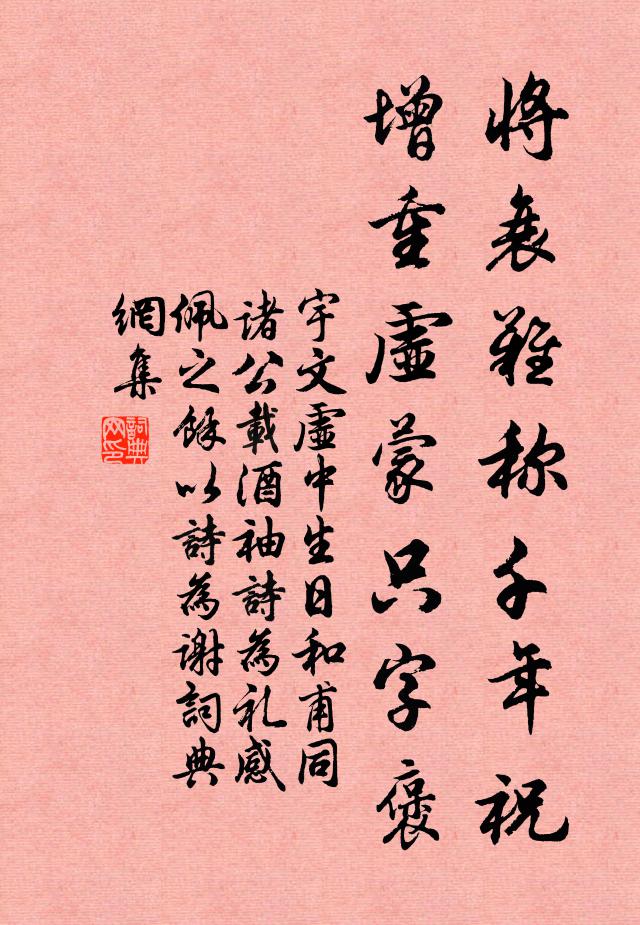 將衰難称千年祝
增重虛蒙只字褒
宇文虛中生日和甫同
諸公載酒袖詩為礼感
佩之餘以詩為谢詞典
網集
詞典
网印